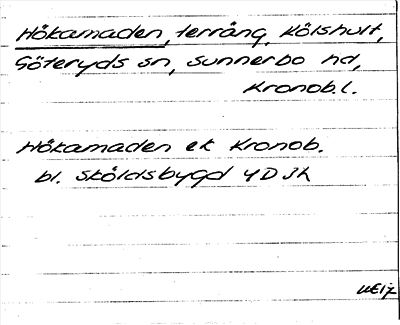 Hökamaden, terräng, Kölshult,
Göteryds sn, Sunnerbo hd,
Kronob.l.
Hökamaden ek Kronob.
bl. Sköldsbygd 4D3h